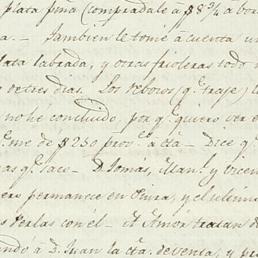 plata piña (comprada le a $8 3/4 a bor
a. — Tambien le tomé á cuenta u
lata labrada, y otras frioleras todo
o tres dias. Los reboros (q.e traje) l
no hé concluido, por q.e quiero ver e
q.e me de $230 prov.s a c.ta — Dice q.e
as q.e saco — D. Tomás, Man.l y Vicen
ero permanece en Piura, y el ultimo
s Perlas con él — A Amór tratan d
ando á D. Juan la c.ta de venta, y p